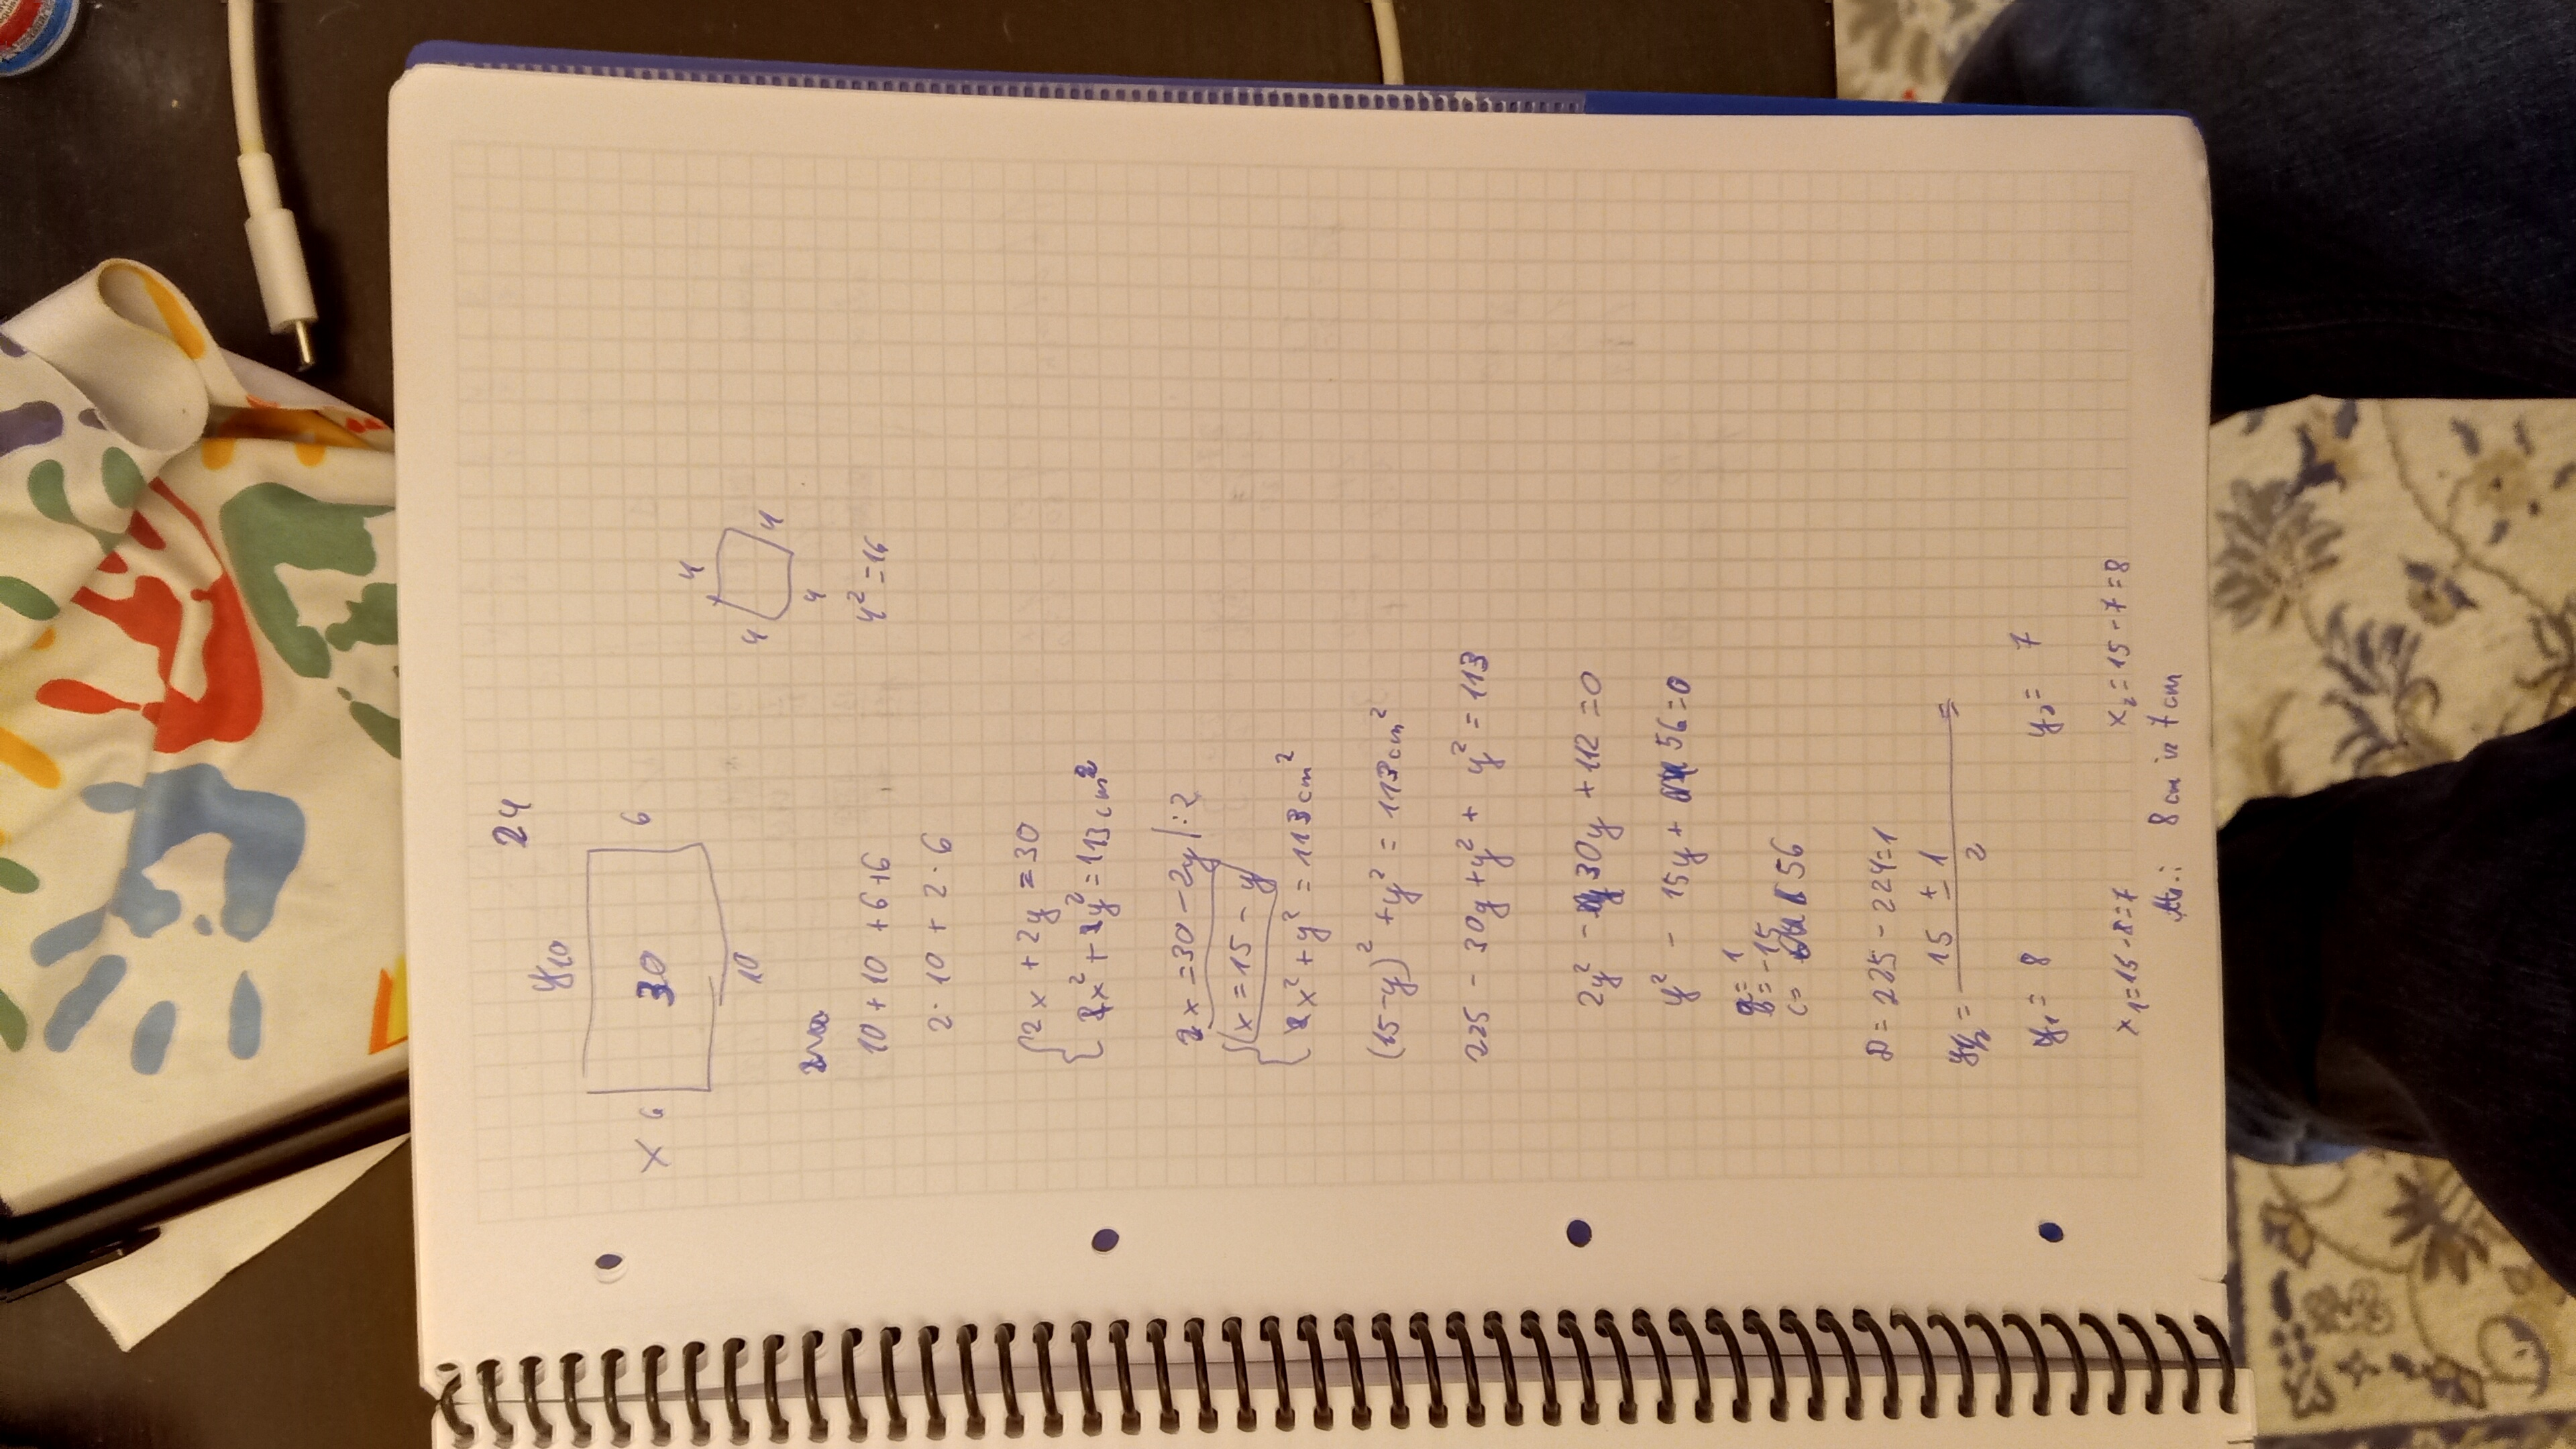 24
y 10
x 6 30 6
10
4
4 4
4
4² = 16
10 + 10 + 6 + 6
2 · 10 + 2 · 6
{ 2x + 2y = 30
{ x² + y² = 113 cm²
2x = 30 - 2y | : 2
{ x = 15 - y
{ x² + y² = 113 cm²
(15 - y)² + y² = 113 cm²
225 - 30y + y² + y² = 113
2y² - 30y + 112 = 0
y² - 15y + 56 = 0
a = 1
b = -15
c = 56
D = 225 - 224 = 1
15 ± 1
2
y₁ = 8 y₂ = 7
x₁ = 15 - 8 = 7 x₂ = 15 - 7 = 8
Ats.: 8 cm ir 7 cm